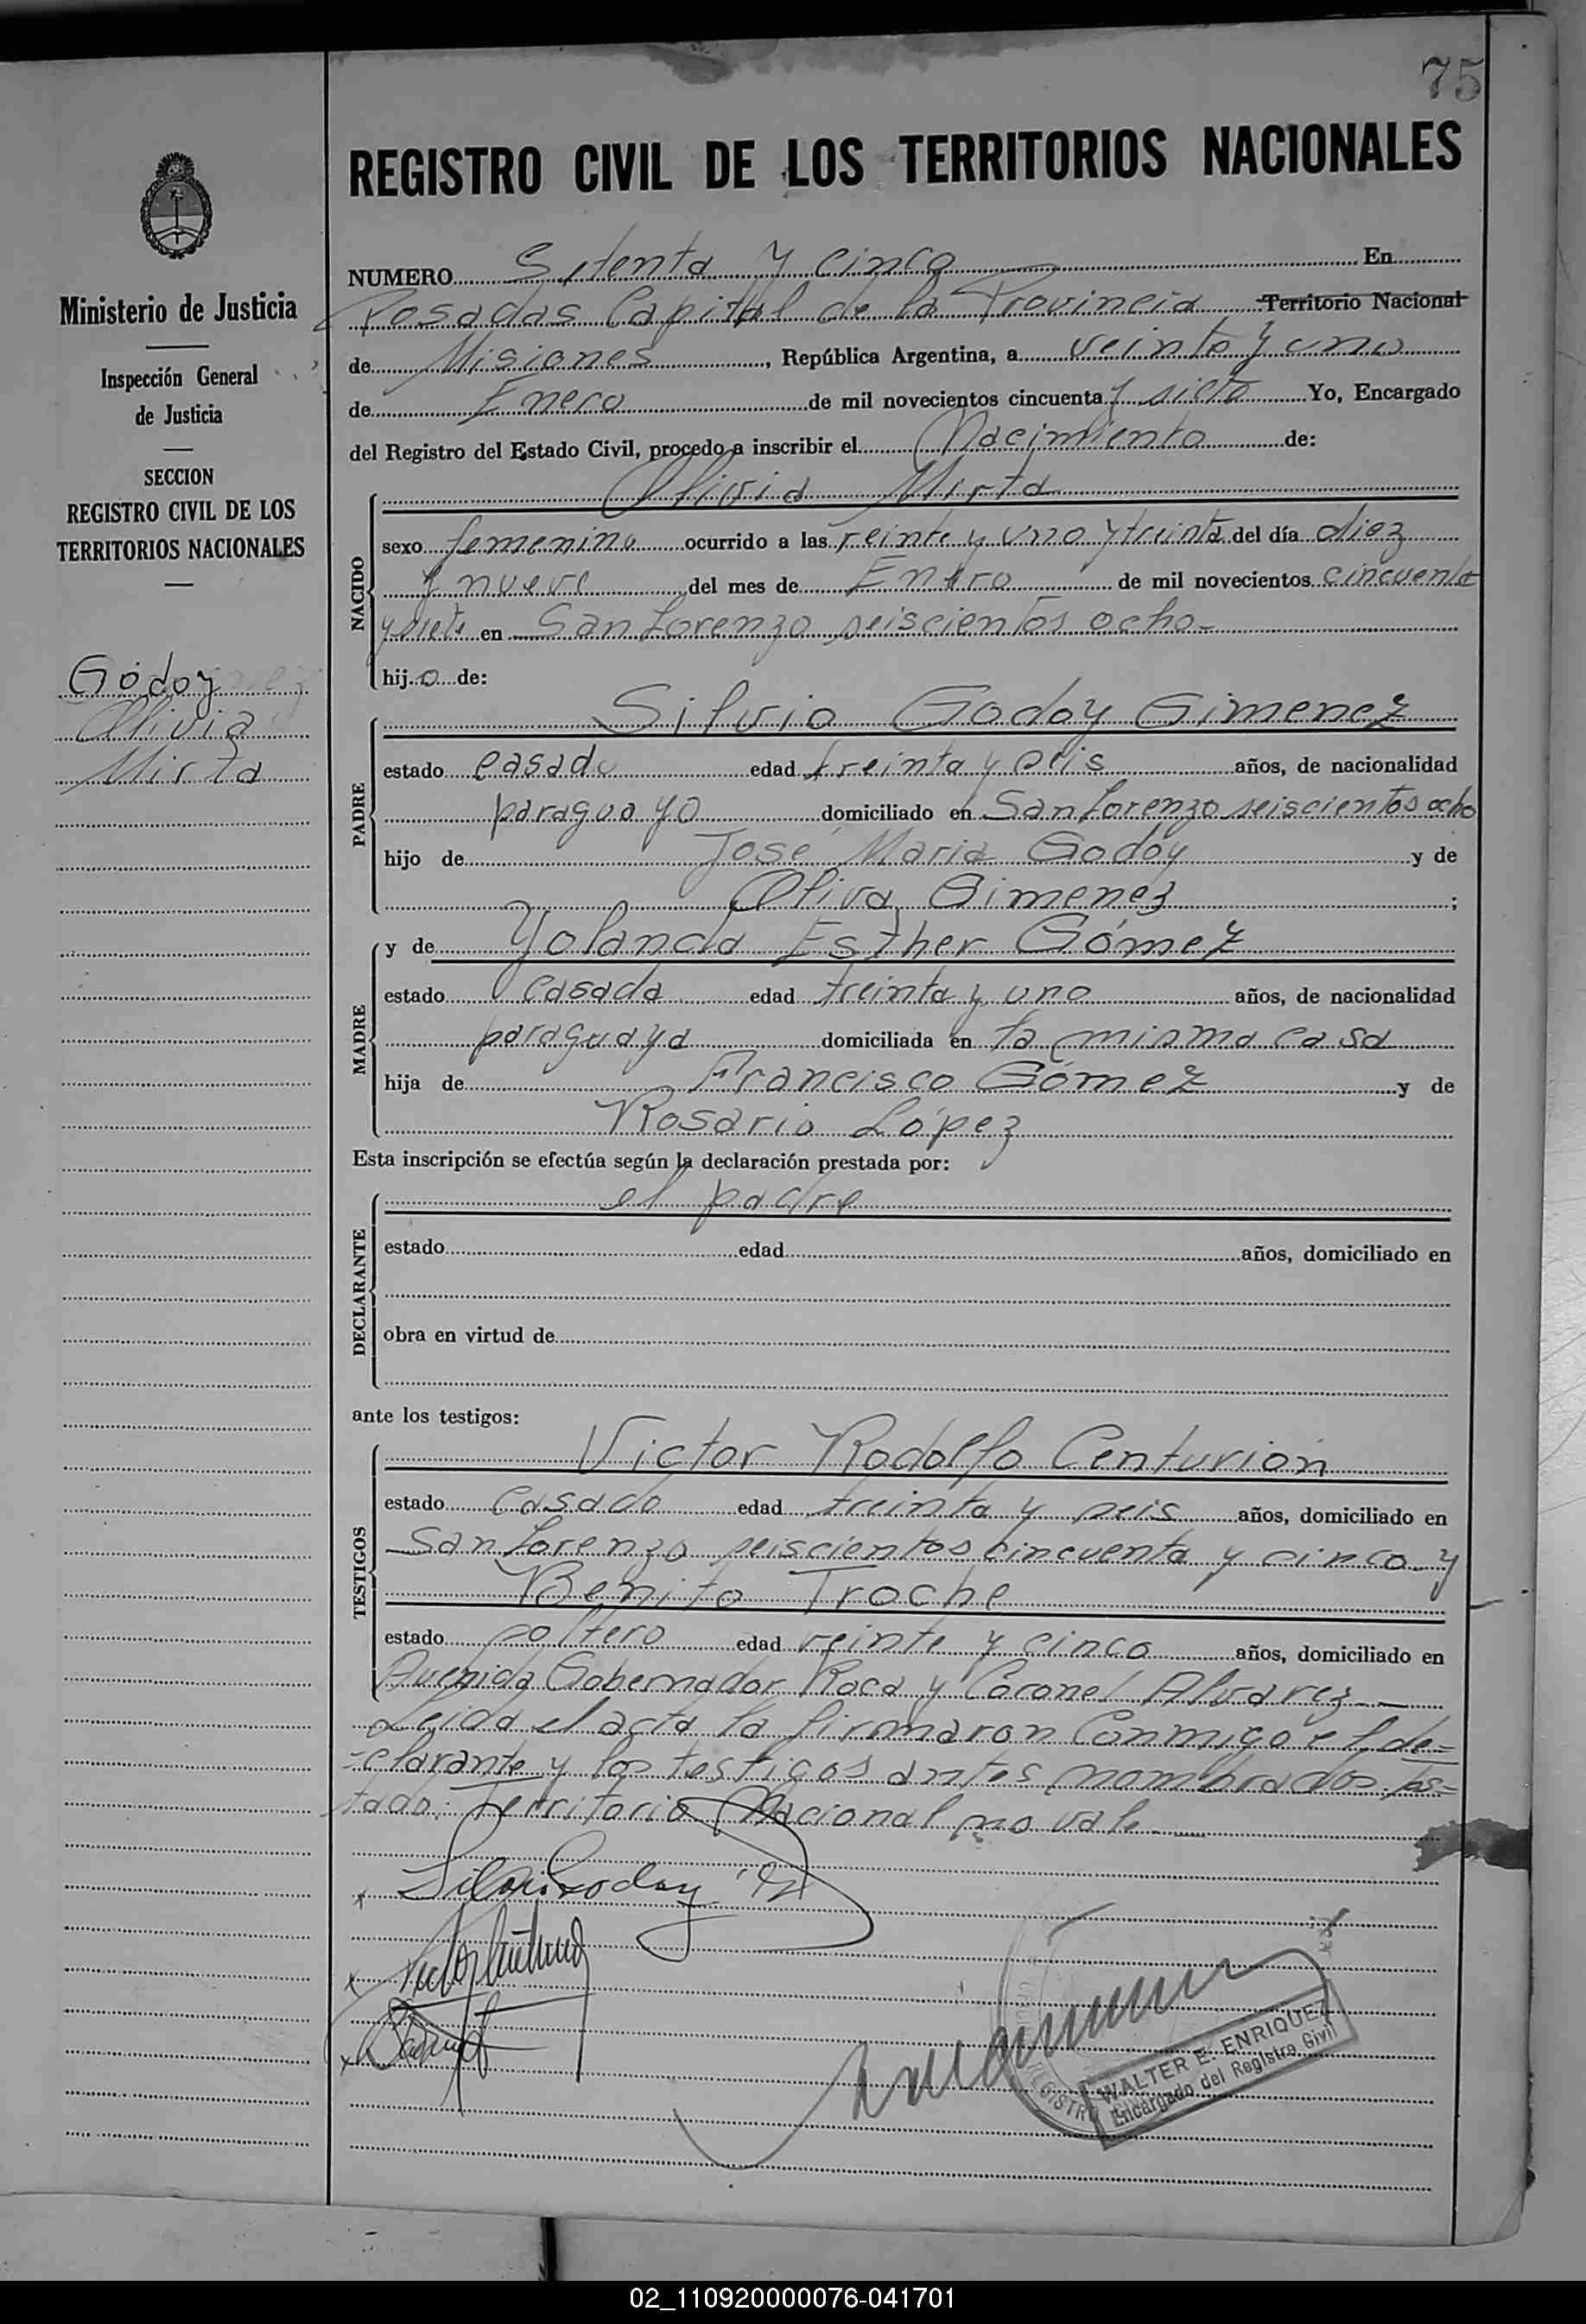 75
REGISTRO CIVIL DE LOS TERRITORIOS NACIONALES
Ministerio de Justicia
Inspección General
de Justicia
SECCION
REGISTRO CIVIL DE LOS
TERRITORIOS NACIONALES
Godoy
Olivia
Mirta
NUMERO Setenta y cinco En
Posadas Capital de la Provincia Territorio Nacional
de Misiones, República Argentina, a veinte y uno
de Enero de mil novecientos cincuenta y siete Yo, Encargado
del Registro del Estado Civil, procedo a inscribir el Nacimiento de:
NACIDO
Olivia Mirta
sexo femenino ocurrido a las veinte y uno y treinta del día diez
y nueve del mes de Enero de mil novecientos cincuenta
y siete en San Lorenzo seiscientos ocho-
hij o de:
PADRE
Silvio Godoy Gimenez
estado casado edad treinta y seis años, de nacionalidad
paraguayo domiciliado en San Lorenzo seiscientos ocho
hijo de José Maria Godoy y de
Oliva Gimenez ;
MADRE
y de Yolanda Esther Gómez
estado casada edad treinta y uno años, de nacionalidad
paraguaya domiciliada en la misma casa
hija de Francisco Gómez y de
Rosario López
Esta inscripción se efectúa según la declaración prestada por:
DECLARANTE
el padre
estado edad años, domiciliado en
obra en virtud de
ante los testigos:
TESTIGOS
Victor Rodolfo Centurión
estado casado edad treinta y seis años, domiciliado en
San Lorenzo seiscientos cincuenta y cinco y
Benito Troche
estado soltero edad veinte y cinco años, domiciliado en
Avenida Gobernador Roca y Coronel Alvarez-
Leida el acta la firmaron conmigo el de=
=clarante y los testigos antes nombrados. tes=
tado: Territorio Nacional no vale.
x Silvio Godoy G
x Victor Centurion
x
REGISTRO
WALTER E. ENRIQUEZ
Encargado del Registro Civil
02_110920000076-041701